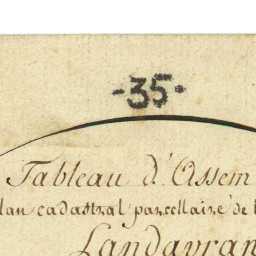 -35-
Tableau d'Assem
lan cadastral parcellaire de l
Landavran